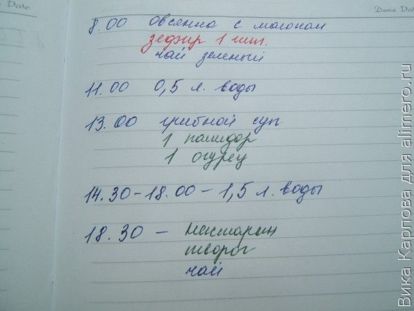 8.00 Овсянка с молоком
зефир 1 шт.
чай зеленый
11.00 0,5 л. воды
13.00 грибной суп
1 помидор
1 огурец
14.30-18.00 - 1,5 л. воды
18.30 - Нектарин
творог
чай
Вика Карпова для alimero.ru